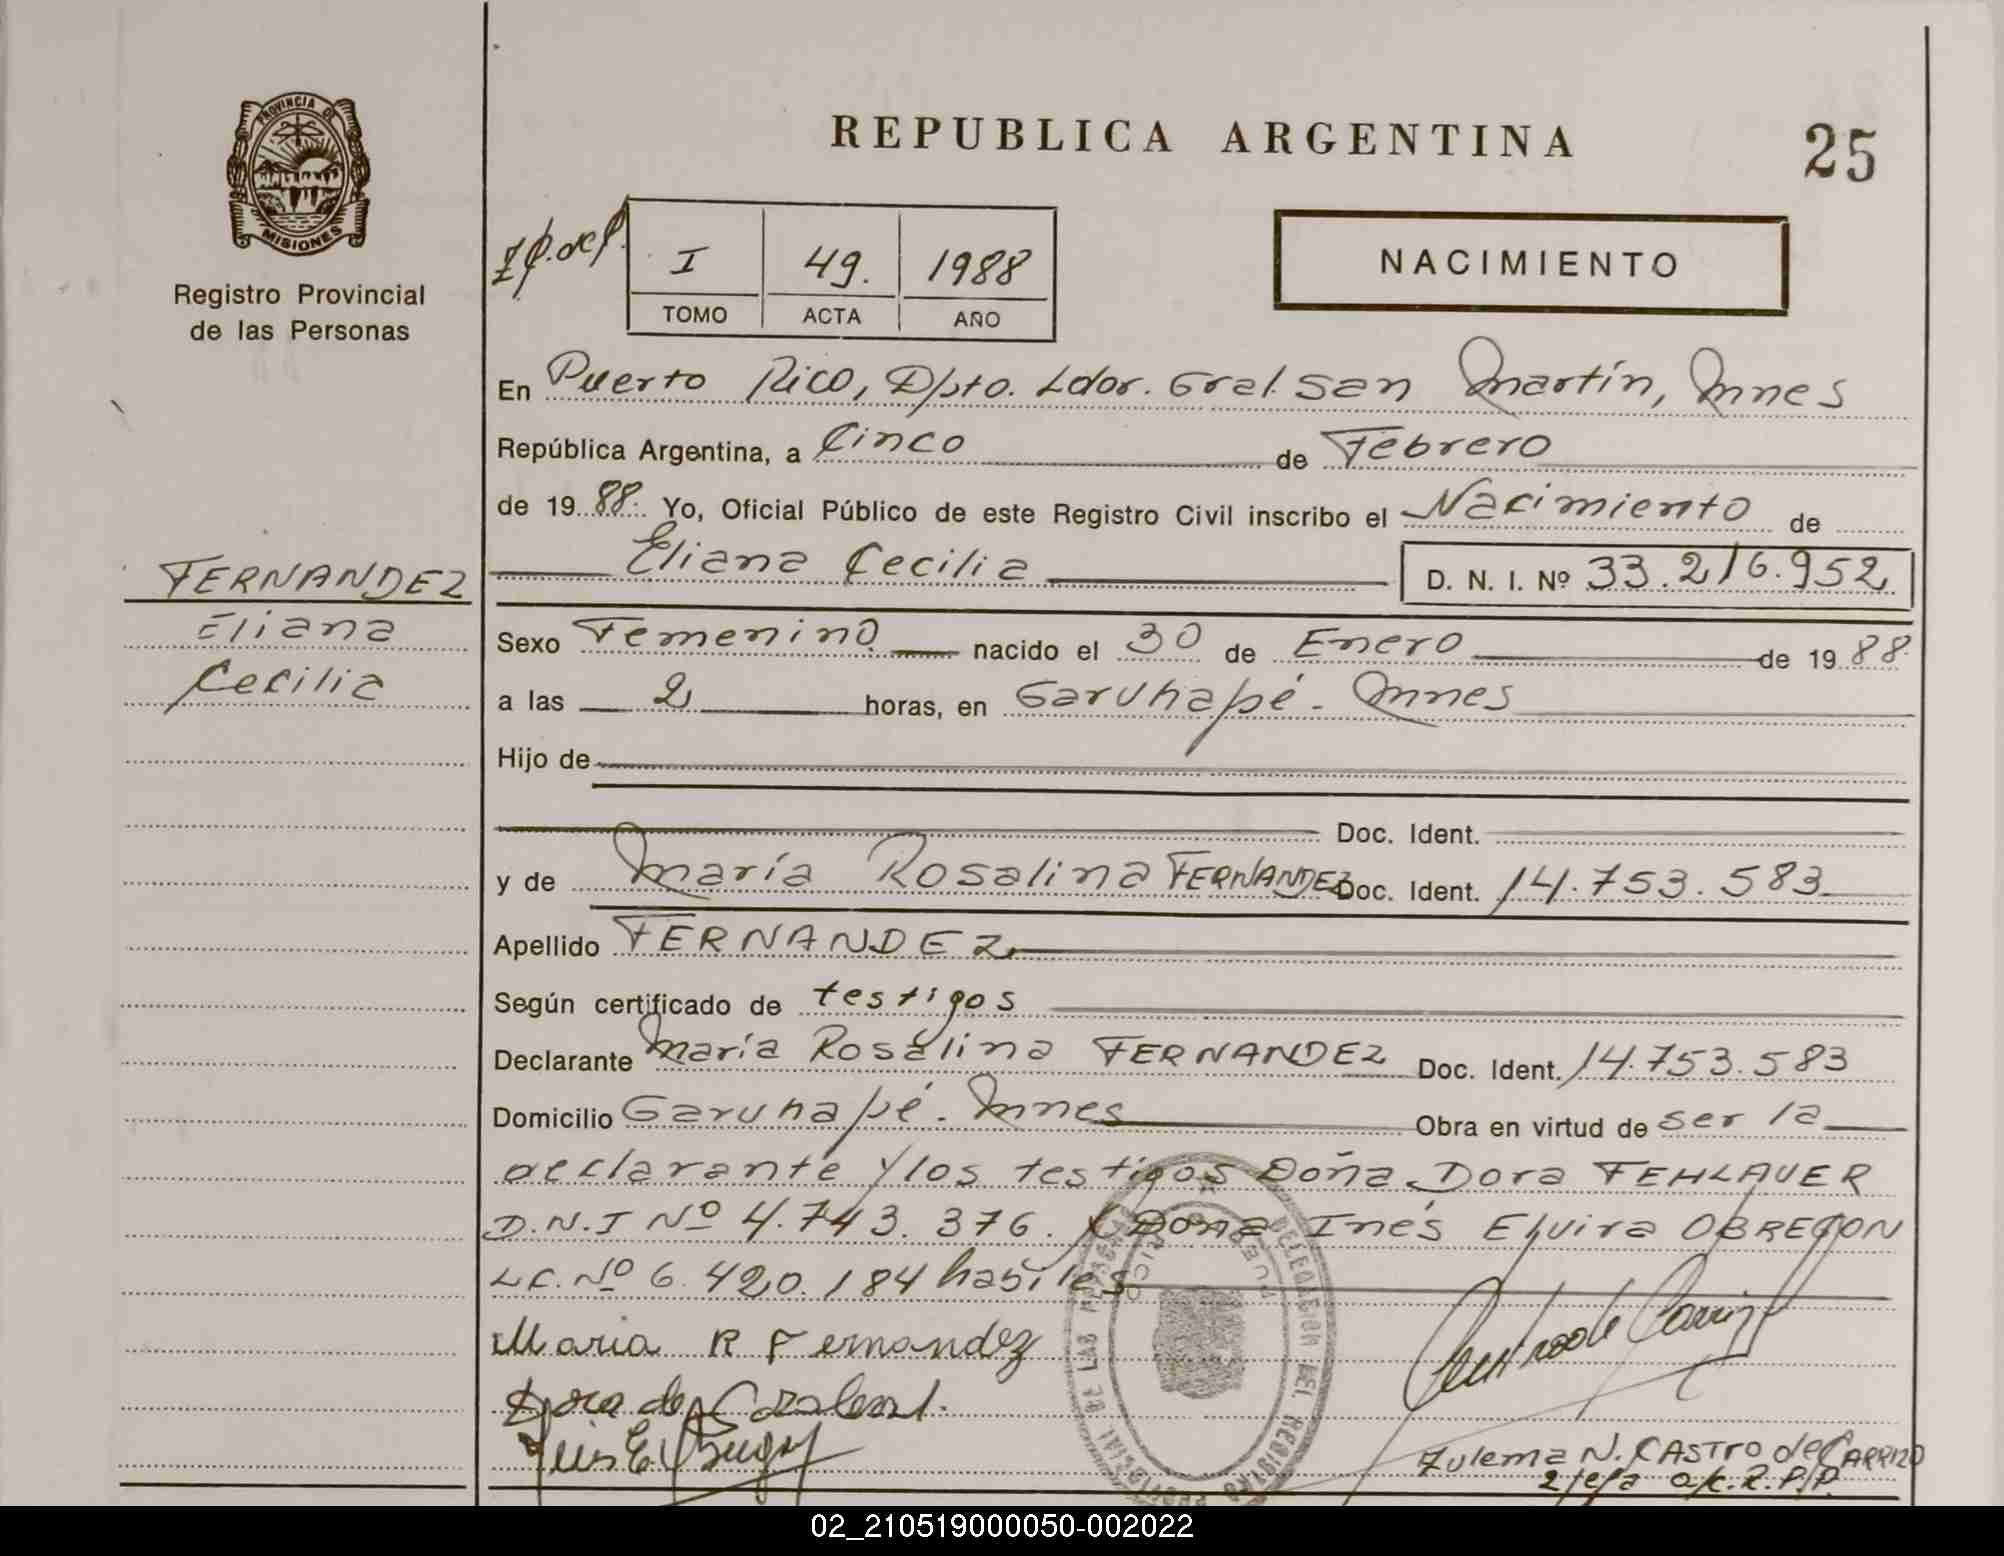 PROVINCIA DE
MISIONES
Registro Provincial
de las Personas
FERNANDEZ
Eliana
Cecilia
REPUBLICA ARGENTINA
25
I 49. 1988
TOMO ACTA AÑO
NACIMIENTO
En Puerto Rico, Dpto. Ldor. Gral. San Martín, Mnes
República Argentina, a Cinco de Febrero
de 19 88. Yo, Oficial Público de este Registro Civil inscribo el Nacimiento de
Eliana Cecilia D. N. I. Nº 33.216.952
Sexo Femenino nacido el 30 de Enero de 19 88.
a las 2 horas, en Garuhapé - Mnes
Hijo de
Doc. Ident.
y de María Rosalina FERNANDEZ Doc. Ident. 14.753.583
Apellido FERNANDEZ
Según certificado de testigos
Declarante María Rosalina FERNANDEZ Doc. Ident. 14.753.583
Domicilio Garuhapé - Mnes Obra en virtud de ser la
declarante y los testigos Doña Dora FEHLAUER
D.N.I Nº 4.743.376. y Doña Inés Elvira OBREGON
L.C. Nº 6.420.184 habiles
Maria R Fernandez
Zulema N. CASTRO de CARRIZO
2/efa a/c. R.P/P.
DELEGACION DEL REGISTRO PROVINCIAL DE LAS PERSONAS
02_210519000050-002022